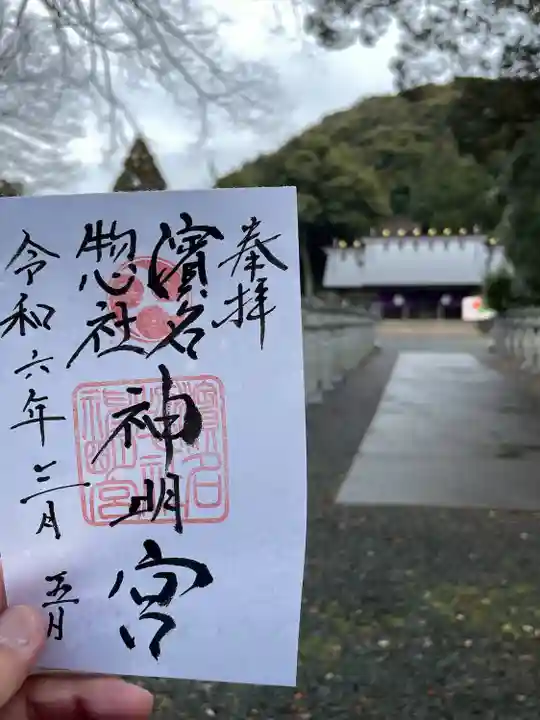 奉拝
濱名
惣社
神明宮
令和六年三月
五日